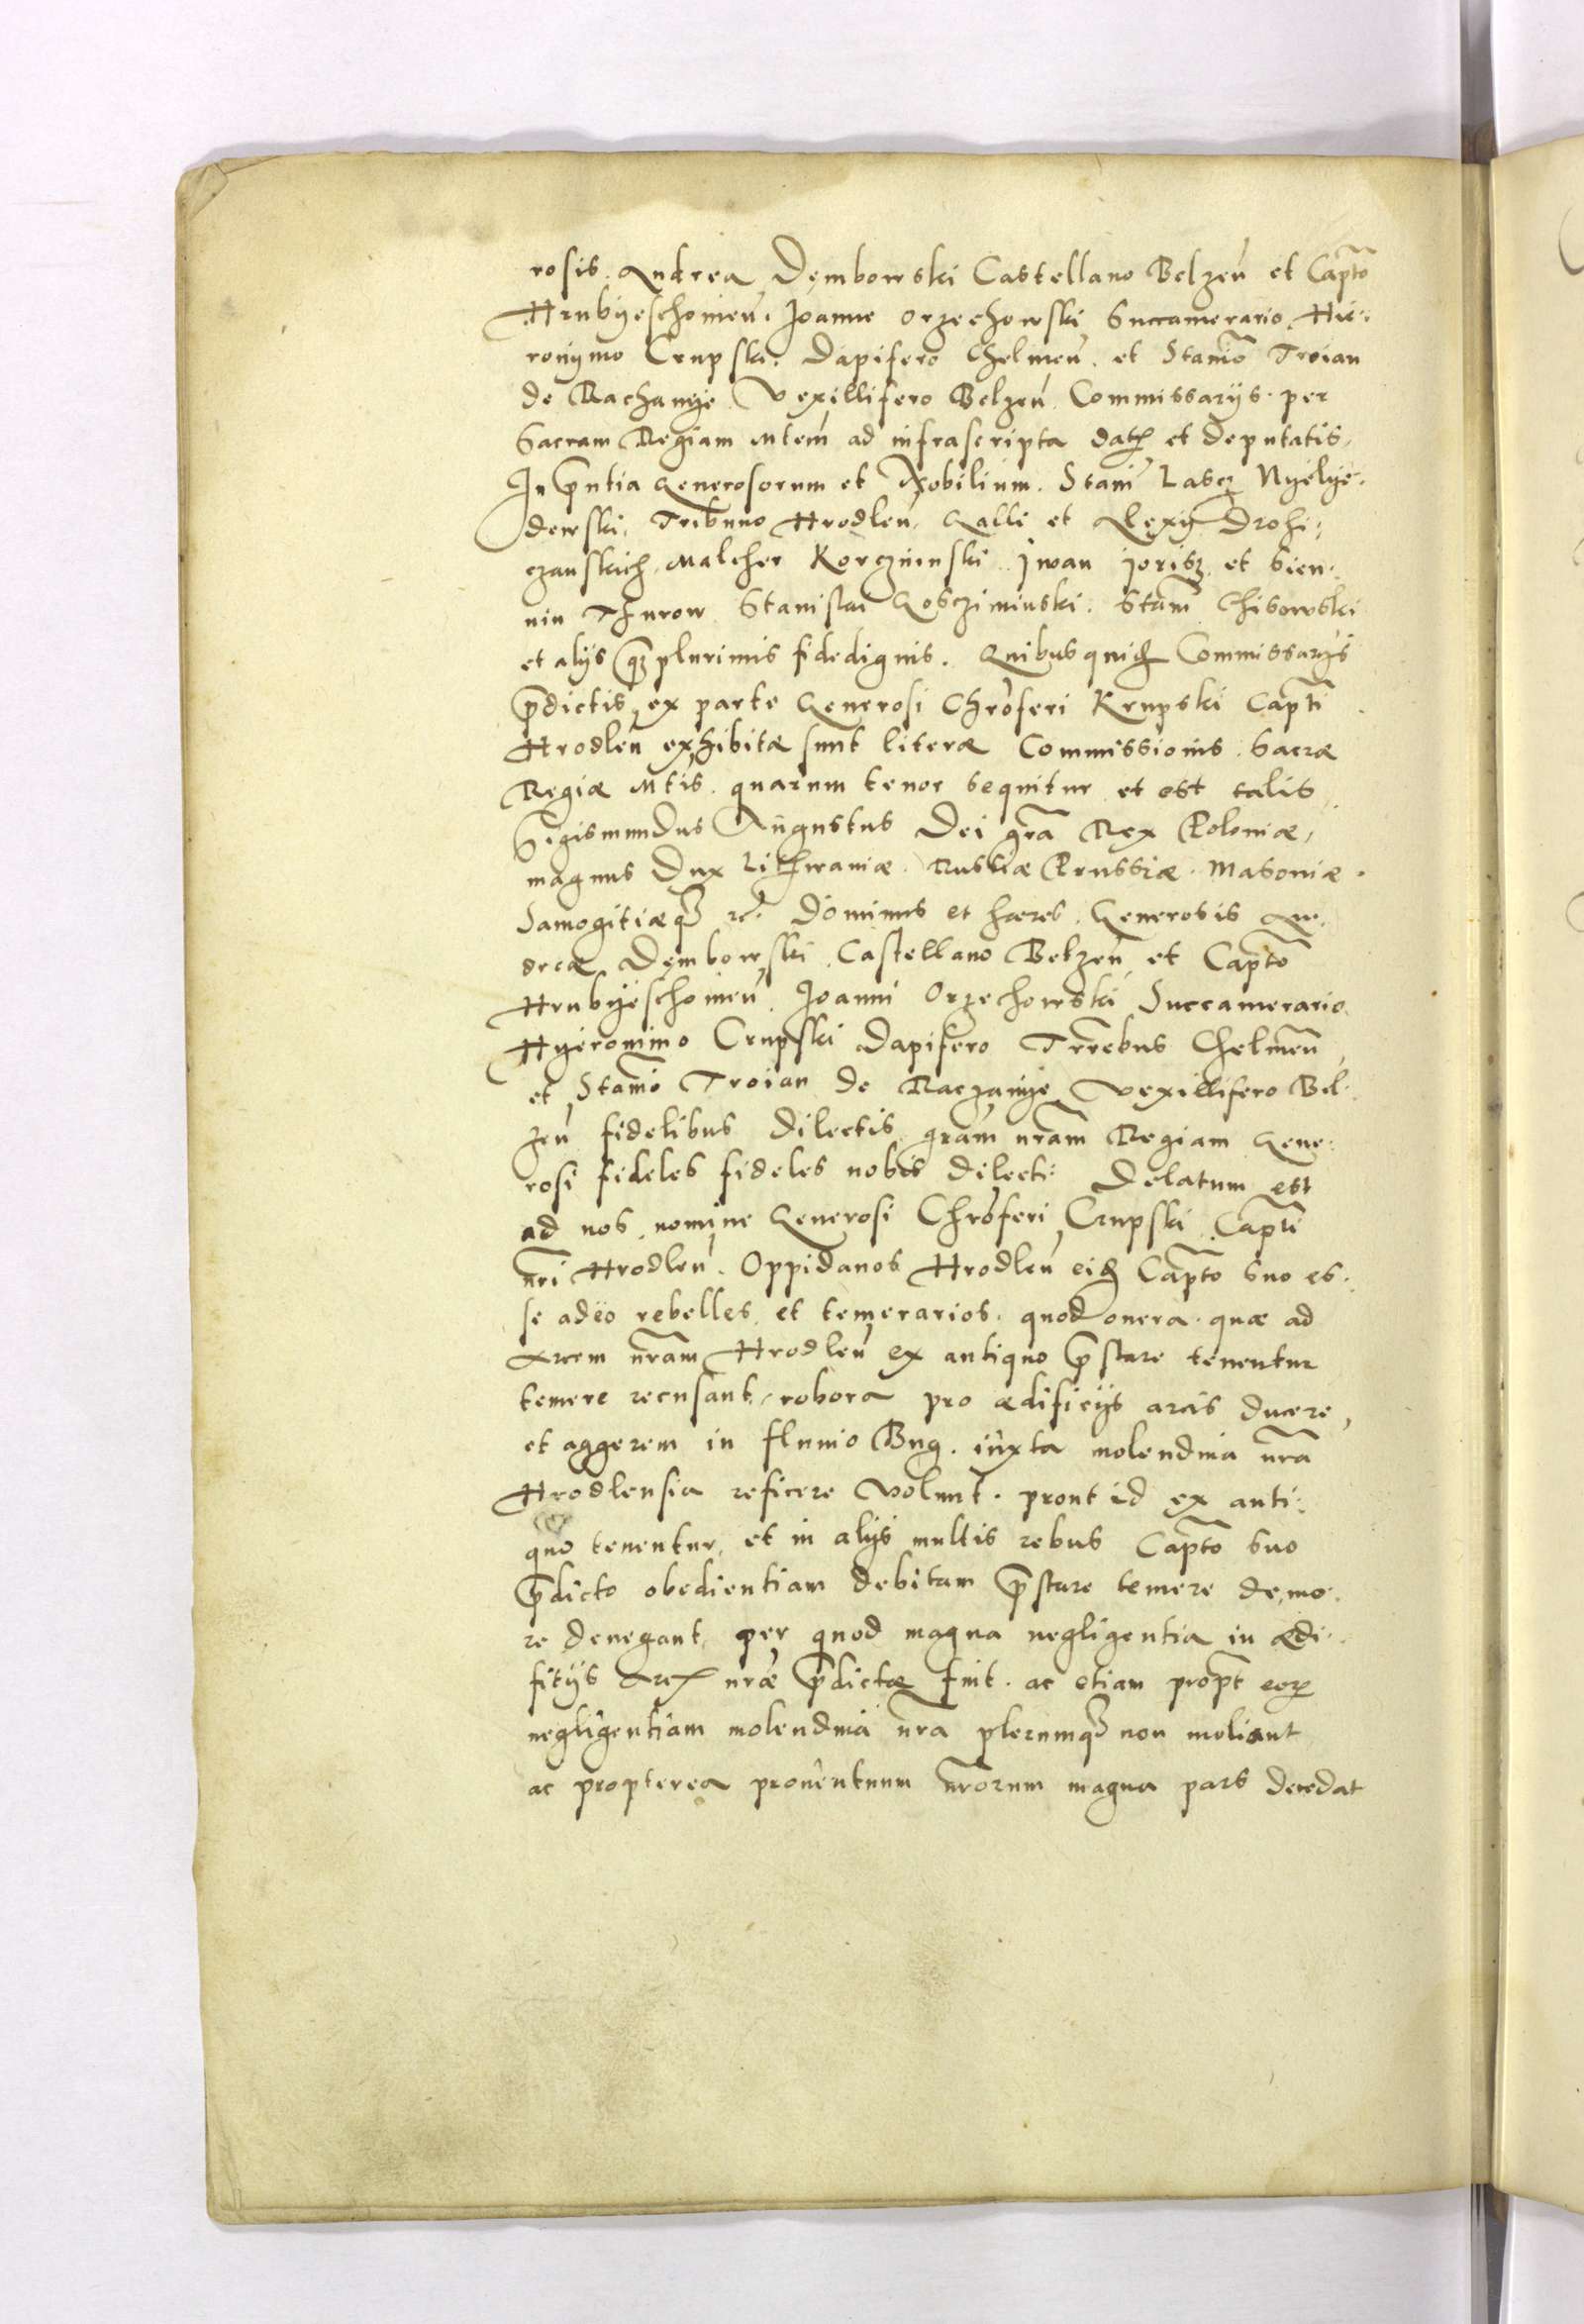 rosis Andrea Dęmbowski Castellano Belzeñ et Capt̃o
Hrubyeschouieñ. Joanne Orzechowski Succamerario, Hie:
ronymo Crupski. Dapifero Chelmeñ. et Stanĩo Troian
de Rachanye Vexillifero Belzeñ Commissarijs per
Sacram Regiam Mtem̃ ad infrascripta dat. et deputatis.
In p̃ntia Generosorum et Nobilium. Stanĩ Lascz Nyelye:
dewski, Tribuno Hrodleñ, Galli et Alexij Drohi:
czanskich, Malcher Korczminski Jwan Jorisz et Sien:
nin Thurow Stanislai Gosczimiuski. Stanĩ Chisowski
et alijs q̃ plurimis fidedignis. Quibusquid Commissarijs
p̃dictis, ex parte Generosi Chrõferi Krupski Capt̃i
Hrodleñ exhibitæ sunt literæ Commissionis Sacræ
Regiæ Mt̃is. quarum tenor sequitur et est talis
Sigismundus Augustus Dei gr̃a Rex Poloniæ,
magnus Dux Lithwaniæ. Russiæ Prussiæ. Masouiæ.
Samogitiæq3 rc̃. Dominus et hæres. Generosis An:
dreæ Dęmbowski Castellano Belzeñ et Capt̃o
Hrubyeschouieñ. Joanni Orzechowski Succamerario,
Hyeronimo Crupski Dapifero Tr̃rebus Chelmeñ
et Stanĩo Troian de Raczanye Vexillifero Bel:
zeñ fidelibus dilectis gr̃am nr̃am Regiam Gene:
rosi fideles fideles nobis dilecti. Delatum est
ad nos nomine Generosi Chrõferi Crupski Capt̃i
nr̃i Hrodleñ. Oppidanos Hrodleñ eid Capt̃o suo es:
se adeo rebelles et temerarios. quod onera quæ ad
Arcem nr̃am Hrodleñ ex antiquo p̃stare tenentur
temere recusant, robora pro ædificijs arcis ducere,
et aggerem in fluuio Bug. iuxta molendina nr̃a
Hrodlensia reficere volunt. prout id ex anti:
quo tenentur, et in alijs multis rebus Capt̃o suo
p̃dicto obedientiam debitam p̃stare temere de mo:
re denegant, per quod magna negligentia in ædi:
fitijs Arc nr̃æ p̃dictæ fuit. ac etiam propt̃ eor
negligentiam molendina nr̃a plerumq3 non moliant
ac propterea prouentuum nr̃orum magna pars decedat